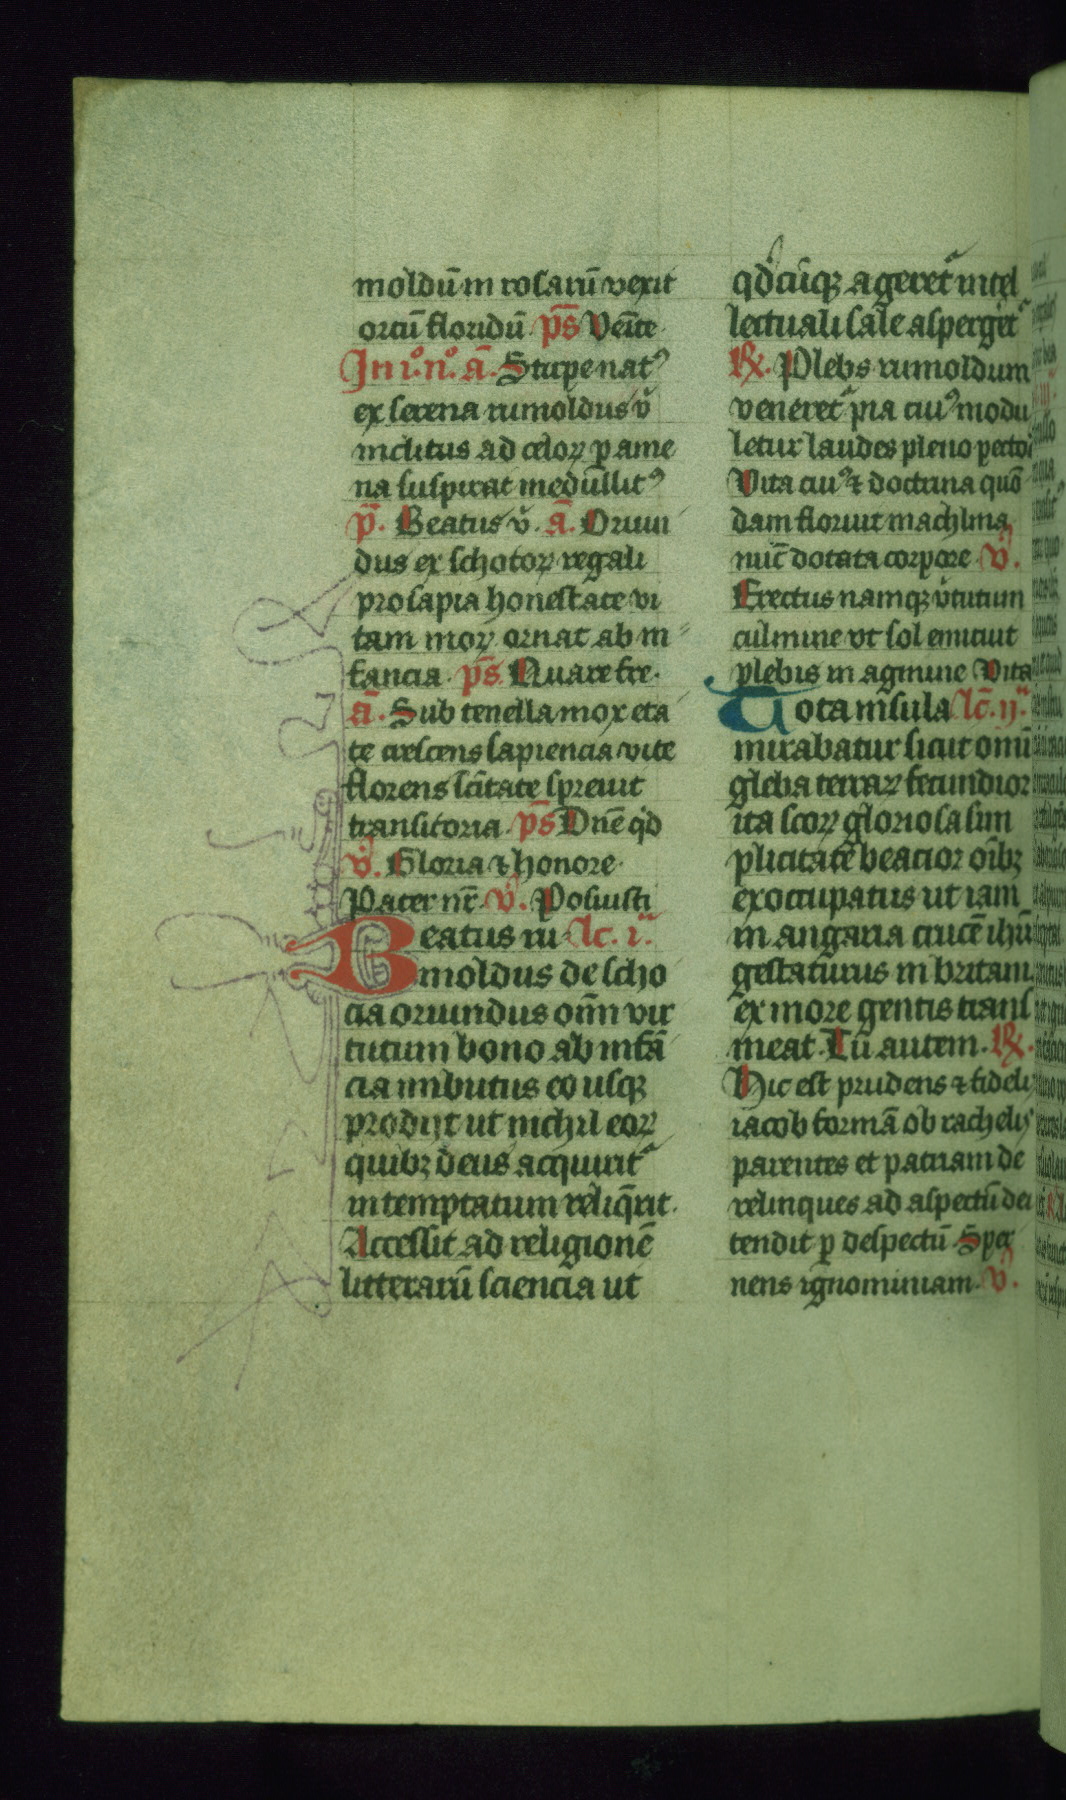 moldū in rosarū vexit
ortū floridū. p̄s Venite
In i.º n.º ā. Stirpe nat⁹
ex serena rumoldus v̄
inclitus ad celoꝝ p̱ ame
na suspirat medullit⁹
p̄. Beatus v̄. ā. Oriun
dus ex schotoꝝ regali
prosapia honestate vi
tam moꝝ ornat ab in
fancia. p̄s. Quare fre.
ā. Sub tenella mox eta
te crescens sapiencia vite
florens sc̄itate spreuit
transitoria. p̄s Dn̄e qd̄
v̄. Gloria ⁊ honore.
Pater nr̄. v̄. Posuisti
Beatus ru lc̄. i.ª
moldus de scho
cia oriundus om̄n vir
tutum bono ab infā
cia imbutus eo usqꝫ
prodijt ut nichil eoꝝ
quibꝫ deus acquirit᷑
intemptatum reliq̄rit.
Accessit ad religionē
litterarū sciencia ut
qd̄cūqꝫ ageret᷑ intel
lectuali sale asperget᷑
℟. Plebs rumoldum
veneret᷑ pia cui⁹ modu
letur laudes pleno pectoꝛ
Vita cui⁹ ⁊ doctrina quō
dam floruit machlina
nūc dotata corpore. v̄.
Erectus namqꝫ v̄tutum
culmine vt sol emicuit
plebis in agmine Vita
Tota insula lc̄. ij.ª
mirabatur sicut omī
gleba terraꝝ fecundior
ita scōꝝ gloriosa sim
plicitate beatior oībꝫ
exoccupatus ut iam
in angaria crucē ihū
gestaturus in britani.
ex more gentis trans
meat. Tū autem. ℟.
Hic est prudens ⁊ fidelis
iacob formā ob rachelis
parentes et patriam de
relinques ad aspectū dei
tendit p̱ despectū Sper
nens ignominiam. v̄.